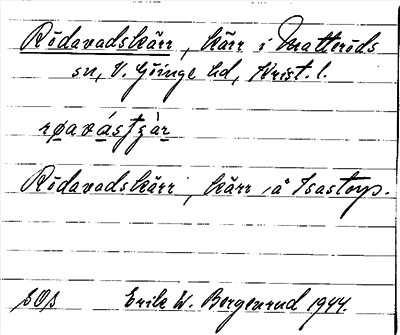 Rödavadskärr, kärr i Matteröds
sn, V. Göinge hd, Krist. l.
Rödavadskärr, kärr i å Isastorp.
Erik W. Bergenrud 1944.